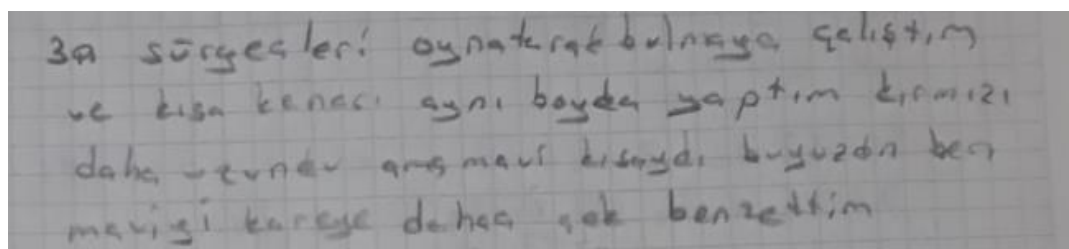 3a sürgeçleri oynatarak bulmaya çalıştım
ve kısa kenarı aynı boyda yaptım kırmızı
daha uzundu ama mavi kısaydı buyuzdn ben
maviyi kareye dahaa çok benzettim